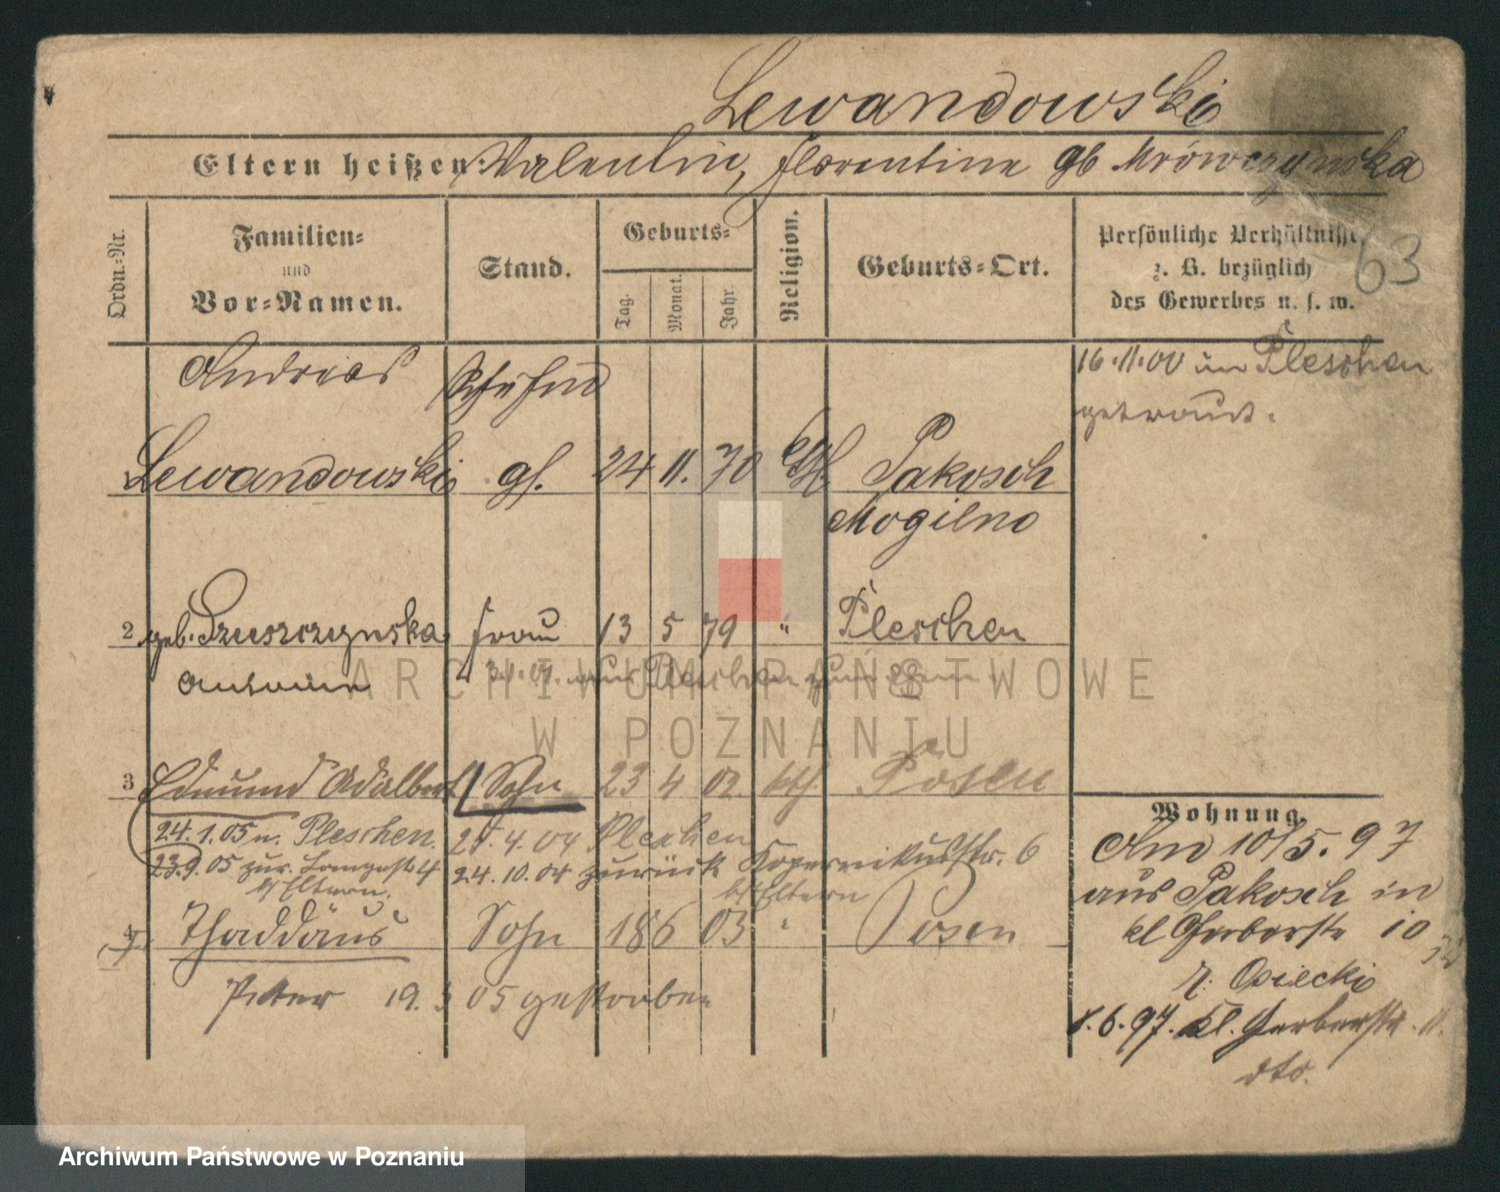 Lewandowski
Eltern heißen: Valentin, Florentine gb Mrówczynska
Ordn.-Nr.
Familien- und Vor-Namen.
Stand.
Geburts-
Tag. Monat. Jahr.
Religion.
Geburts-Ort.
Persönliche Verhältnisse,
z. B. bezüglich
des Gewerbes u. s. w.
63
Andreas
16.11.00 in Pleschen
getraut.
Lewandowski gs. 24 11. 70 kth Pakosch
Mogilno
2 geb. Frau 13 5 79 " Pleschen
Antonie
aus Pleschen
3 Edmund Adalbert Sohn 23 4 02 kth Posen
24.1.05 n. Pleschen. 4.04 Pleschen
23.9.05 zur. Langest 4 24.10.04 zurück Kopernikusstr. 6
b/ Eltern. b/ Eltern
4 Thaddäus Sohn 18 6 03 " Posen
Peter 19. 05 gestorben
Wohnung
Am 10/5.97
aus Pakosch in
kl Gerberstr 10
b. Osiecki
8.6.97. kl. Gerberstr. 11.
dto.
ARCHIWUM PAŃSTWOWE
W POZNANIU
Archiwum Państwowe w Poznaniu